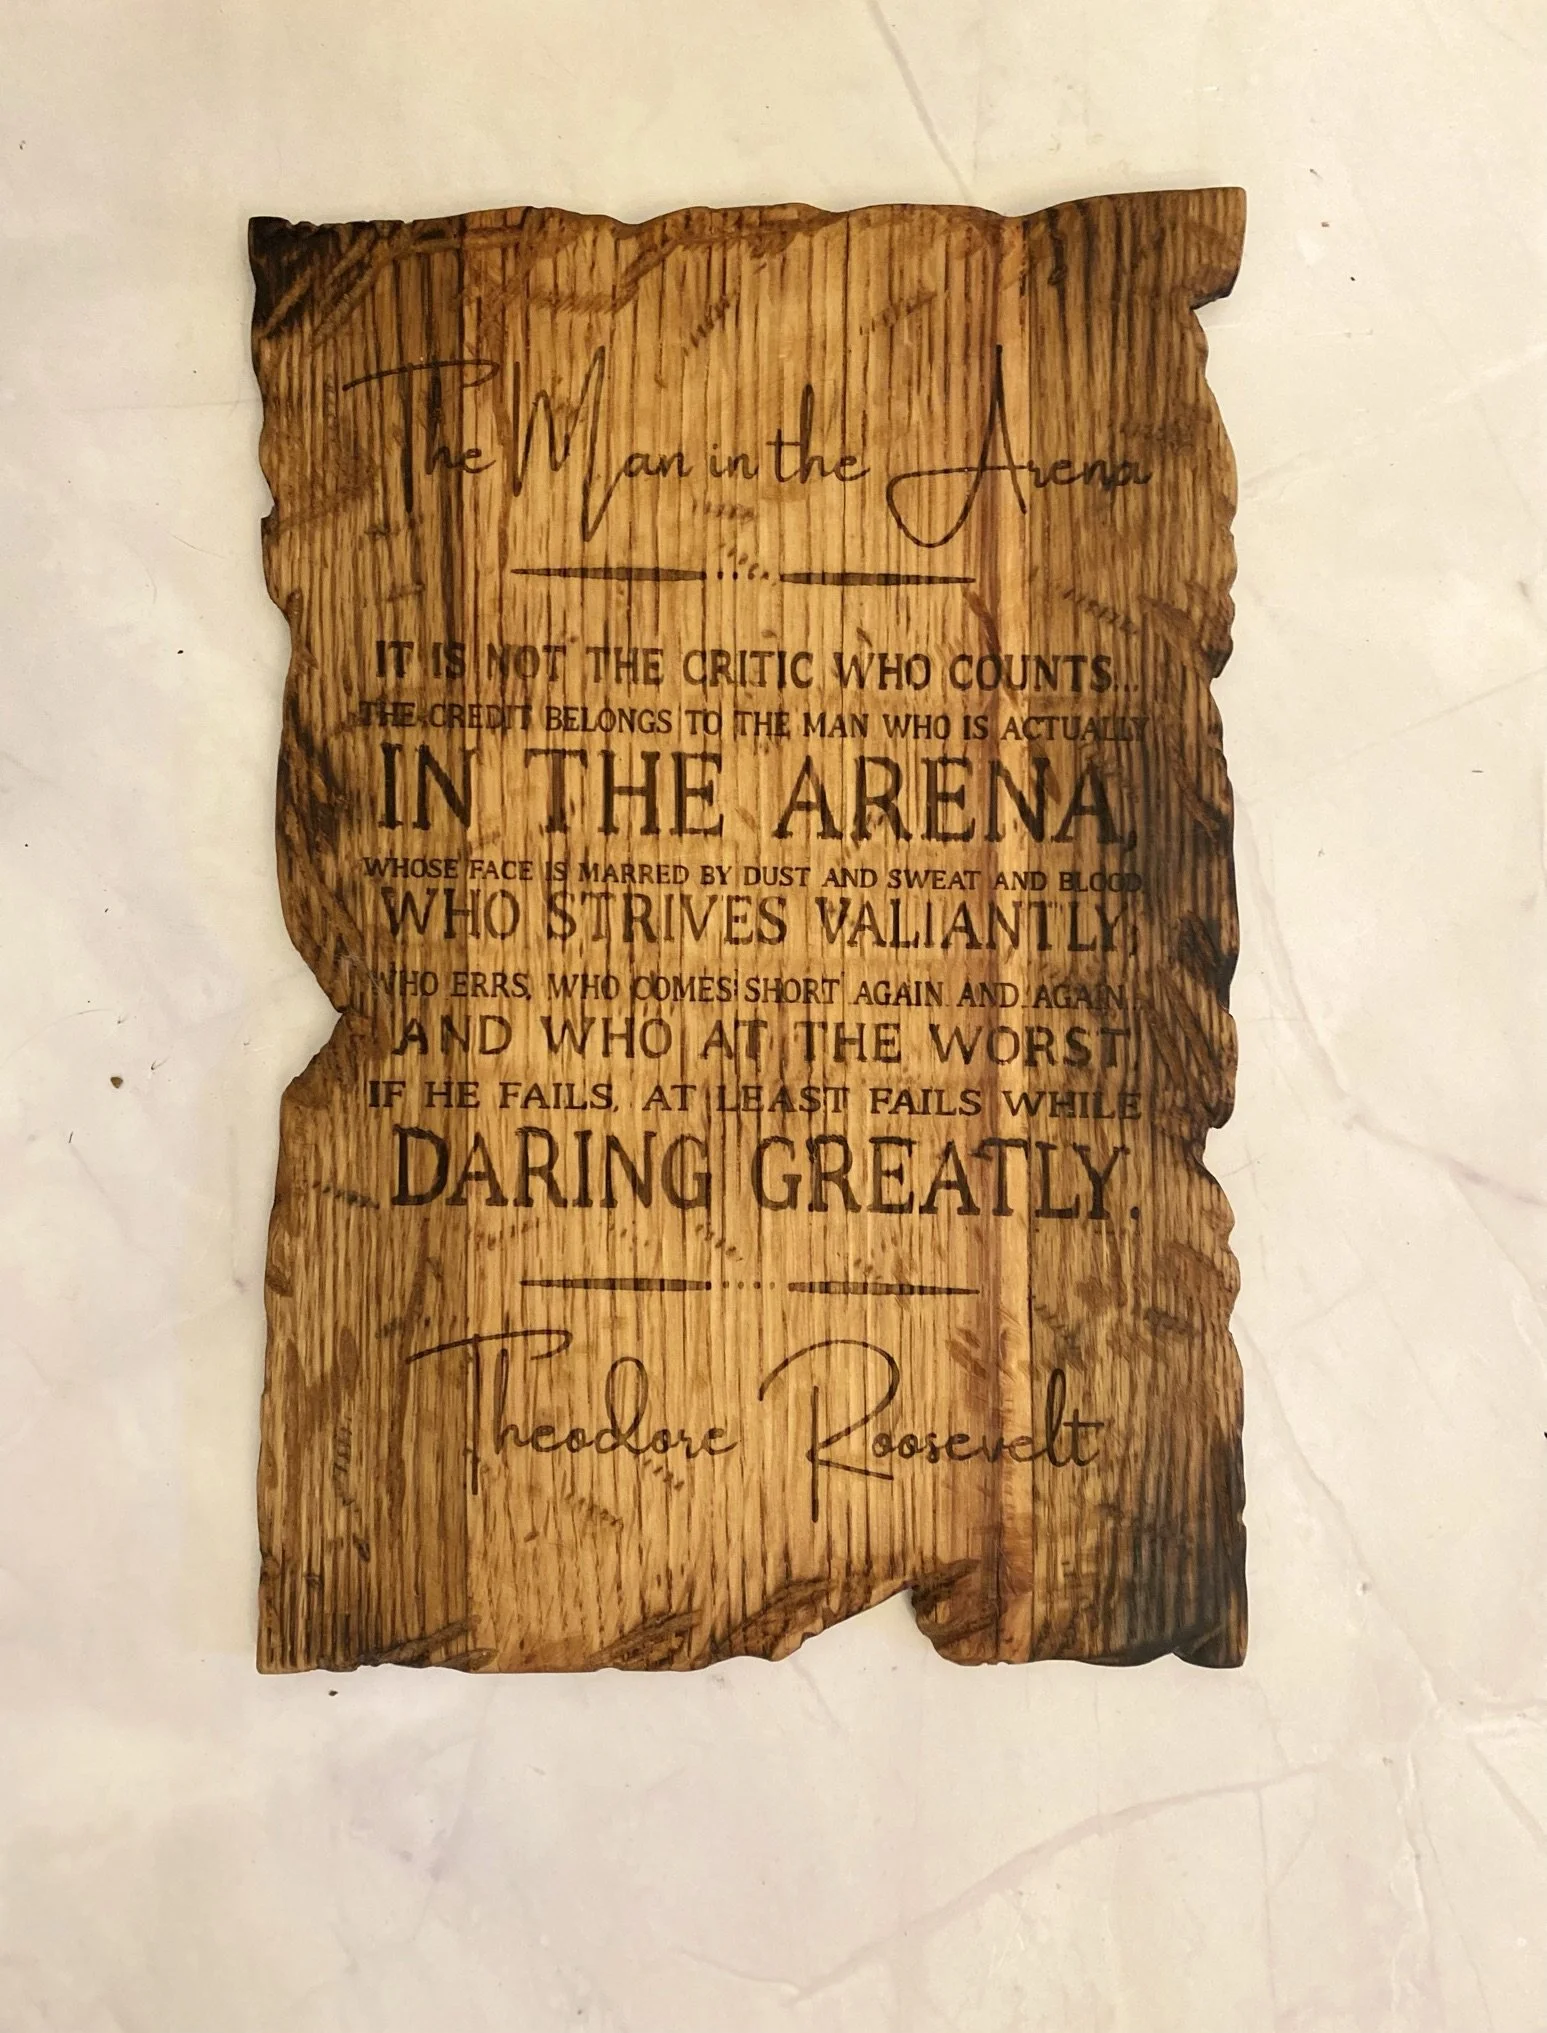 The Man in the Arena
IT IS NOT THE CRITIC WHO COUNTS...
THE CREDIT BELONGS TO THE MAN WHO IS ACTUALLY
IN THE ARENA,
WHOSE FACE IS MARRED BY DUST AND SWEAT AND BLOOD,
WHO STRIVES VALIANTLY;
WHO ERRS, WHO COMES SHORT AGAIN AND AGAIN...
AND WHO AT THE WORST,
IF HE FAILS, AT LEAST FAILS WHILE
DARING GREATLY.
Theodore Roosevelt